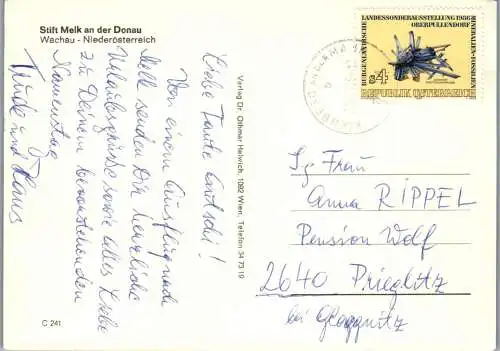 Stift Melk an der Donau
Wachau - Niederösterreich
Liebe Tante
Von einem Ausflug nach
Melk senden Dir herzliche
Urlaubsgrüße sowie alles Liebe
zu Deinem bevorstehenden
Namenstag
Trude und Hans
C 241
Verlag Dr. Othmar Helwich, 1092 Wien, Telefon 34 73 19
BURGENLÄNDISCHE
LANDESSONDERAUSSTELLUNG 1986
OBERPULLENDORF
MINERALIEN+FOSSILIEN
S4
REPUBLIK ÖSTERREICH
Sg Frau
Anna RIPPEL
Pension Wolf
2640 Prieglitz
bei Gloggnitz